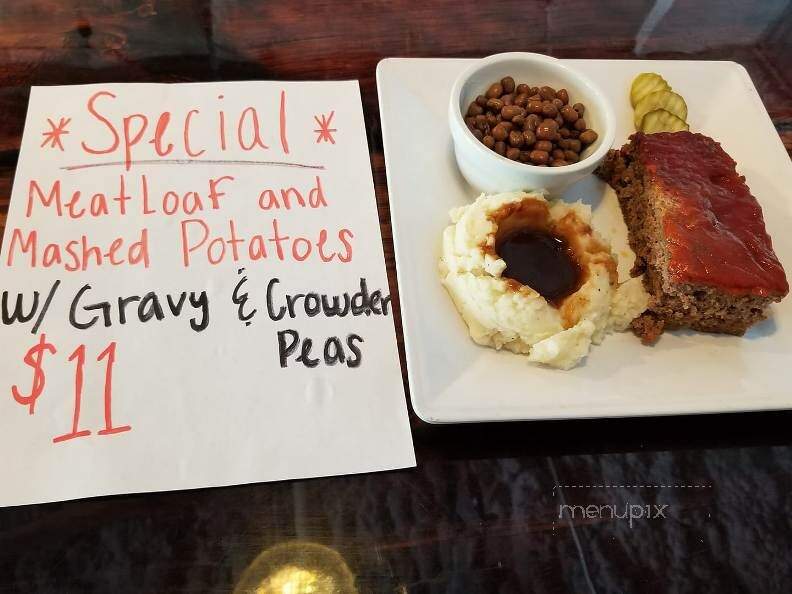 *Special*
Meatloaf and
Mashed Potatoes
w/ Gravy & Crowder
Peas
$11
menupix